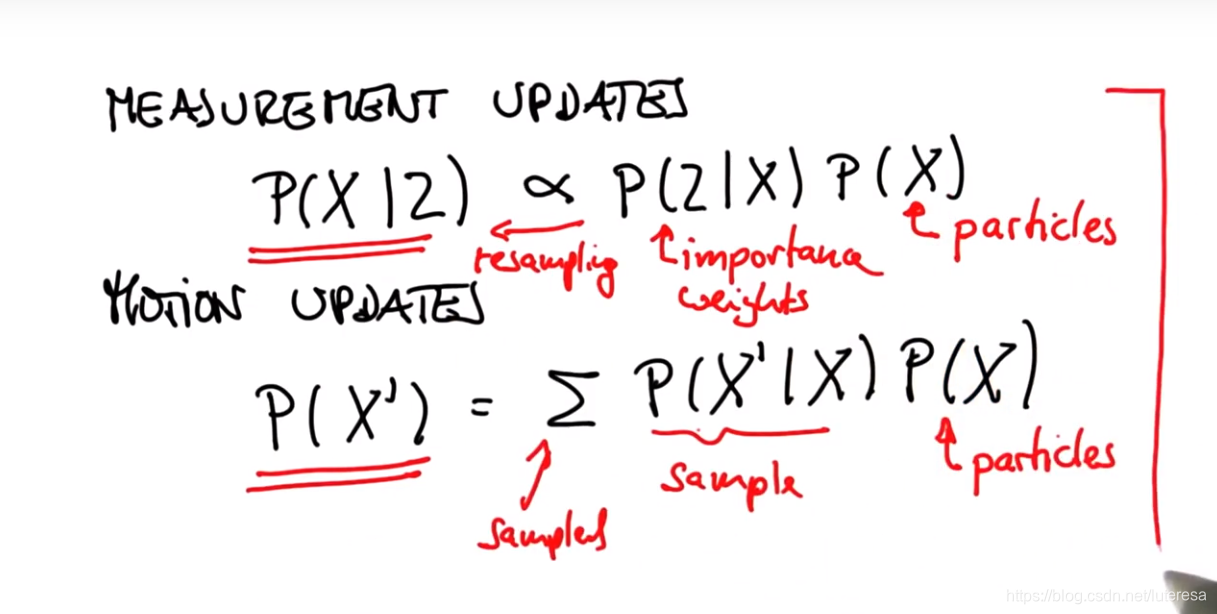 MEASUREMENT UPDATES
P(X|Z) ∝ P(Z|X) P(X)
resampling importance weights particles
MOTION UPDATES
P(X') = Σ P(X'|X) P(X)
samples sample particles
https://blog.csdn.net/luteresa